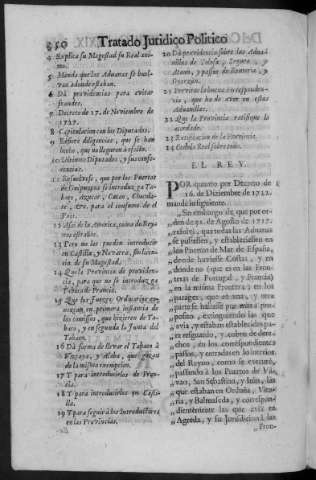 350 Tratado Juridico Politico
4 Explica su Magestad su Real animo.
5 Manda que las Aduanas se buelvan adonde estaban.
6 Dà providencias para evitar fraudes.
7 Decreto de 17. de Noviembre de 1727.
8 Capitulacion con los Diputados.
9 Esfuerc diligencias, que se han
10 Ultimos Diputados, y sus conferencias.
11 Resuelvese, que por los Puertos de Guipuzcoa se introduzga Tabaco, Azucar, Cacao, Chocolate, &c. para el consumo de el Pais.
12 de la America, como de Reynos
13 Pero no los pueden introducir en Castilla, y Navarra, sin licencia de su Magestad.
14 Que la Provincia de providencia, para que no se introduzga
15 Que los Juezes Ordinarios conozcan en primera instancia de los comissos, que hizieren de Tabaco, y en segunda la Junta del Tabaco.
16 Dà forma de llevar el Tabaco à Vizcaya, y Alaba, que gozan de la misma exempcion.
17 Y para introducirlos de
18 Y para introducirlos en Castilla.
19 Y para seguir à los Introductores en las Provincias.
20 Dà providencia sobre las Aduanillas de Tolosa, Segura, y Ataun, y passos de Bentería, y Oyarzun.
21 Previene la buena correspondencia, que ha de aver en estas Aduanillas.
22 Que la Provincia ratifique lo acordado.
23 Ratificacion de la Provincia.
24 Cedula Real sobre todo.
EL REY.
POR quanto por Decreto de
16. de Diziembre de 1722.
mandè lo siguiente.
Sin embargo de que por orden de 31. de Agosto de 1717.
resolvì, que todas las Aduanas
se passassen, y estableciessen en
los Puertos de Mar de España,
donde huviesse Costas, y en
donde no (que es en las Fronteras
de Portugal, y Francia)
en la misma Frontera; en los
parages, que al una, y otra
parte se hallasse por mas à proposito,
extinguiendo las que
avia, y estaban establecidas para
resguardo, y cobro de derechos,
en los correspondientes
passos, y entradas en lo interior
del Reyno, como se executò,
passando à los Puertos de Vilvao,
San Sebastian, y Irun, las
que estaban en Orduña, Vitoria,
y Balmaseda, y correspondientemente
las que avia en
Agreda, y su Jurisdiccion à las
Fron-